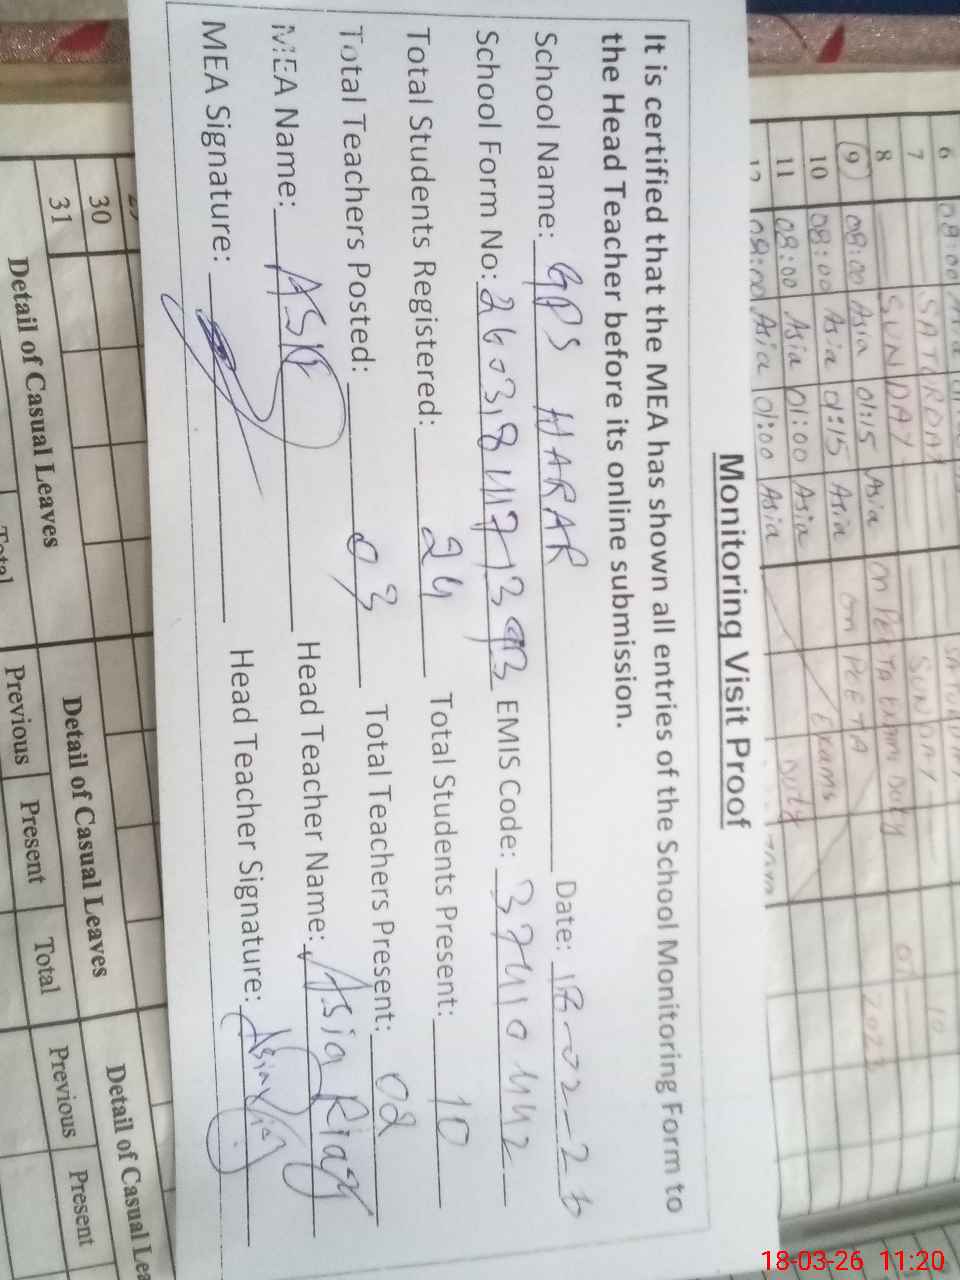 Monitoring Visit Proof
It is certified that the MEA has shown all entries of the School Monitoring Form to
the Head Teacher before its online submission.
School Name: GPS HARAR Date: 18-02-26
School Form No: EMIS Code: 37410442
Total Students Registered: 24 Total Students Present: 10
Total Teachers Posted: 03 Total Teachers Present: 02
MEA Name: Head Teacher Name: Asia Riaz
MEA Signature: Head Teacher Signature:
6 08:00
7 SATURDAY
8 SUNDAY
9 08:00 Asia 01:15 Asia
10 08:00 Asia 01:15 Asia
11 08:00 Asia 01:00 Asia
12 08:00 Asia 01:00 Asia
SUNDAY
Exam Duty
on PEETA
Exams
Duty
30
31
Detail of Casual Leaves
Total
Detail of Casual Leaves
Previous Present Total
Detail of Casual Lea
Previous Present
18-03-26 11:20